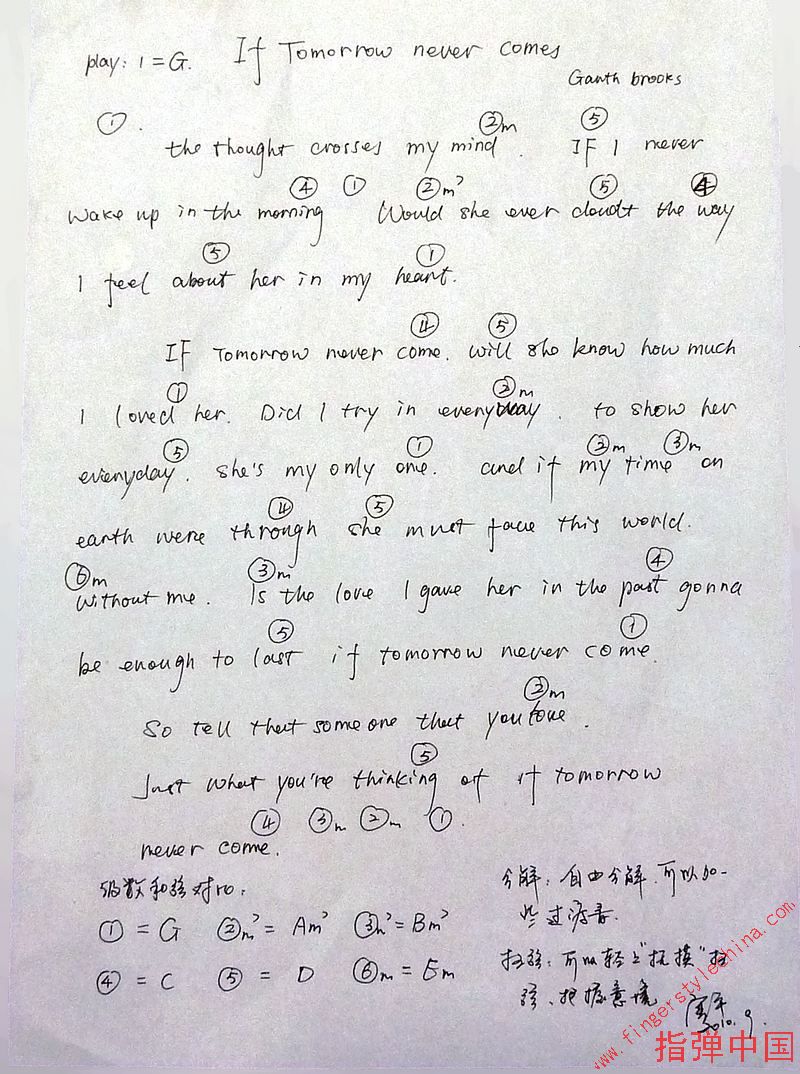 play: 1 = G. If Tomorrow never comes
Ganth brooks
①.
②m ⑤
the thought crosses my mind. IF I never
④ ① ②m⁷ ⑤ ④
wake up in the morning Would she ever cloudt the way
⑤ ①
I feel about her in my heart.
④ ⑤
IF Tomorrow never come. will she know how much
① ②m
I loved her. Did I try in everyway. to show her
⑤ ① ②m ③m
everyday. she's my only one. and if my time on
④ ⑤
earth were through she must face this world.
⑥m ③m ④
without me. Is the love I gave her in the past gonna
⑤ ①
be enough to last if tomorrow never come.
②m
So tell that someone that you love.
⑤
Just what you're thinking of if tomorrow
④ ③m ②m ①.
never come.
级数和弦对应:
① = G ②m⁷ = Am⁷ ③m⁷ = Bm⁷
④ = C ⑤ = D ⑥m = Em
分解: 自由分解.可以加一
些过渡音.
扫弦: 可以轻上"抚摸"扫
弦、把握意境
2010.9.
www.fingerstylechina.com
指弹中国